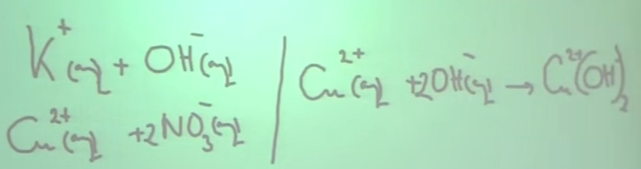 K⁺(aq) + OH⁻(aq)
Cu²⁺(aq) +2NO₃⁻(aq)
Cu²⁺(aq) +2OH⁻(aq) → Cu²⁺(OH⁻)₂